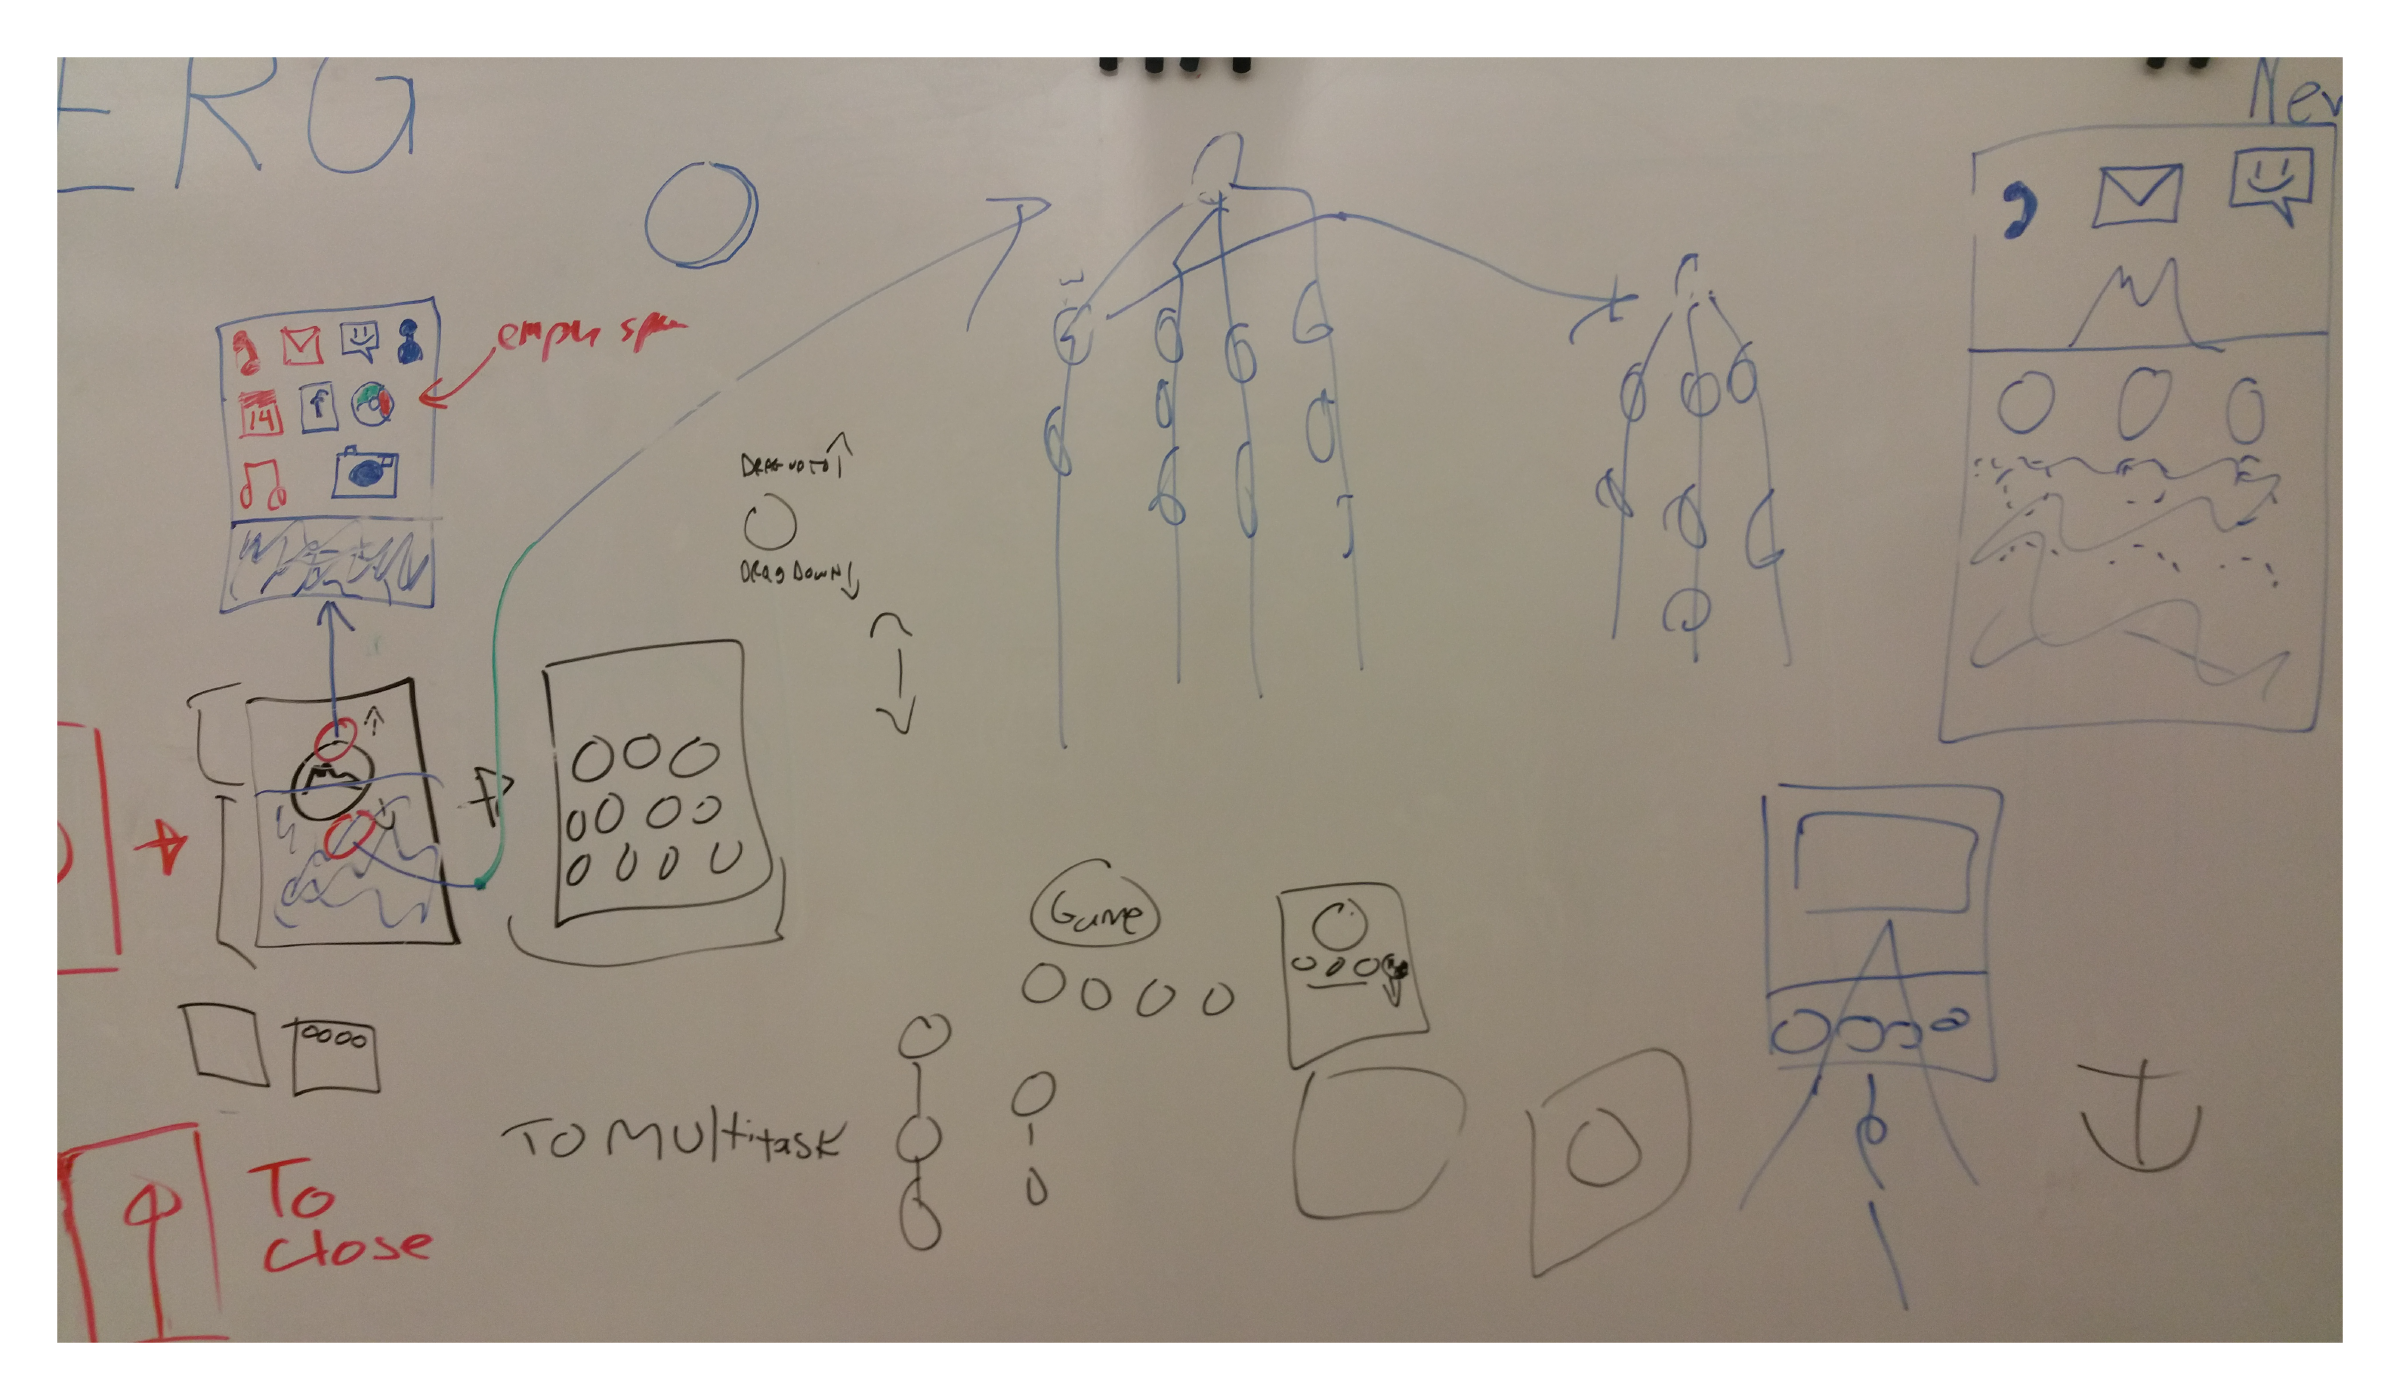 ERG
Nev
14
f
DRAG UP TO
DRAG DOWN
Game
TO MUltitask
To
close